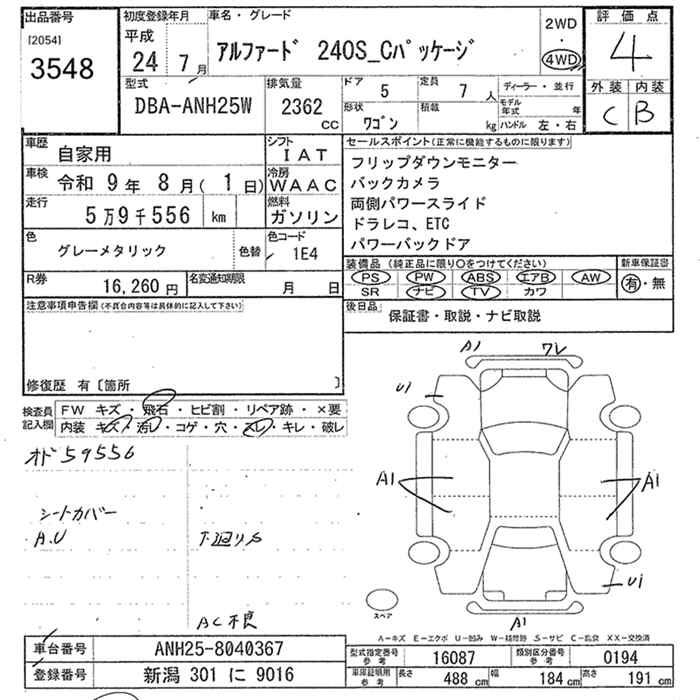 出品番号
[2054]
3548
初度登録年月
平成
24 7 月
車名・グレード
アルファード 240S_Cパッケージ
2WD
・
4WD
評価点
4
型式
DBA-ANH25W
排気量
2362
cc
ドア
5
定員
7 人
形状
ワゴン
積載
kg
ディーラー・並行
モデル年式 年
ハンドル 左・右
外装 内装
C B
車歴
自家用
シフト
IAT
車検 令和 9年 8月( 1日)
冷房
WAAC
走行
5万9千556 km
燃料
ガソリン
色
グレーメタリック
色替
色コード
1E4
R券
16,260円
名変通知期限
月 日
セールスポイント(正常に機能するものに限ります)
フリップダウンモニター
バックカメラ
両側パワースライド
ドラレコ、ETC
パワーバックドア
装備品(純正品に限り○をつけてください)
PS PW ABS エアB AW
SR ナビ TV カワ
新車保証書
有・無
後日品
保証書・取説・ナビ取説
注意事項申告欄(不具合内容等は具体的に記入して下さい)
修復歴 有〔箇所 〕
検査員
記入欄
FW キズ・飛石・ヒビ割・リペア跡・×要
内装 キズ・汚レ・コゲ・穴・スレ・キレ・破レ
オド59556
シートカバー
A.U
下廻りS
AC不良
A1
ワレ
U1
A1
A1
U1
A1
スペア
A-キズ E-エクボ U-凹み W-補修跡 S-サビ C-腐食 XX-交換済
車台番号
ANH25-8040367
登録番号
新潟 301 に 9016
型式指定番号
参考
16087
類別区分番号
参考
0194
車庫証明用
参考
長さ
488 cm
幅
184 cm
高さ
191 cm